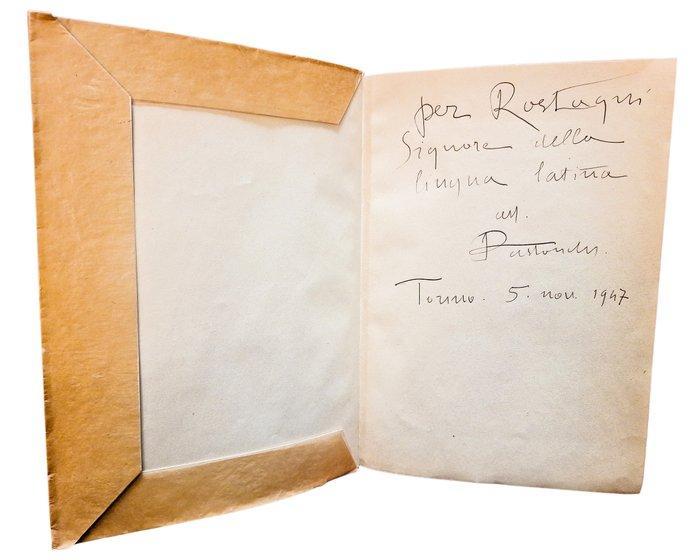 per Rostagni
Signore della
lingua latina
aff.
Pastonchi.
Torino. 5. nov. 1947